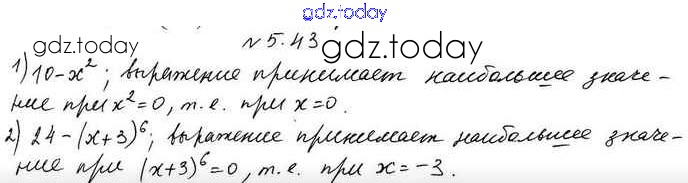 gdz.today
№5.43
gdz.today gdz.today
1) 10-x²; выражение принимает наибольшее значе-
ние при x²=0, т.е. при x=0.
2) 24-(x+3)⁶; выражение принимает наибольшее значе-
ние при (x+3)⁶=0, т.е. при x=-3.